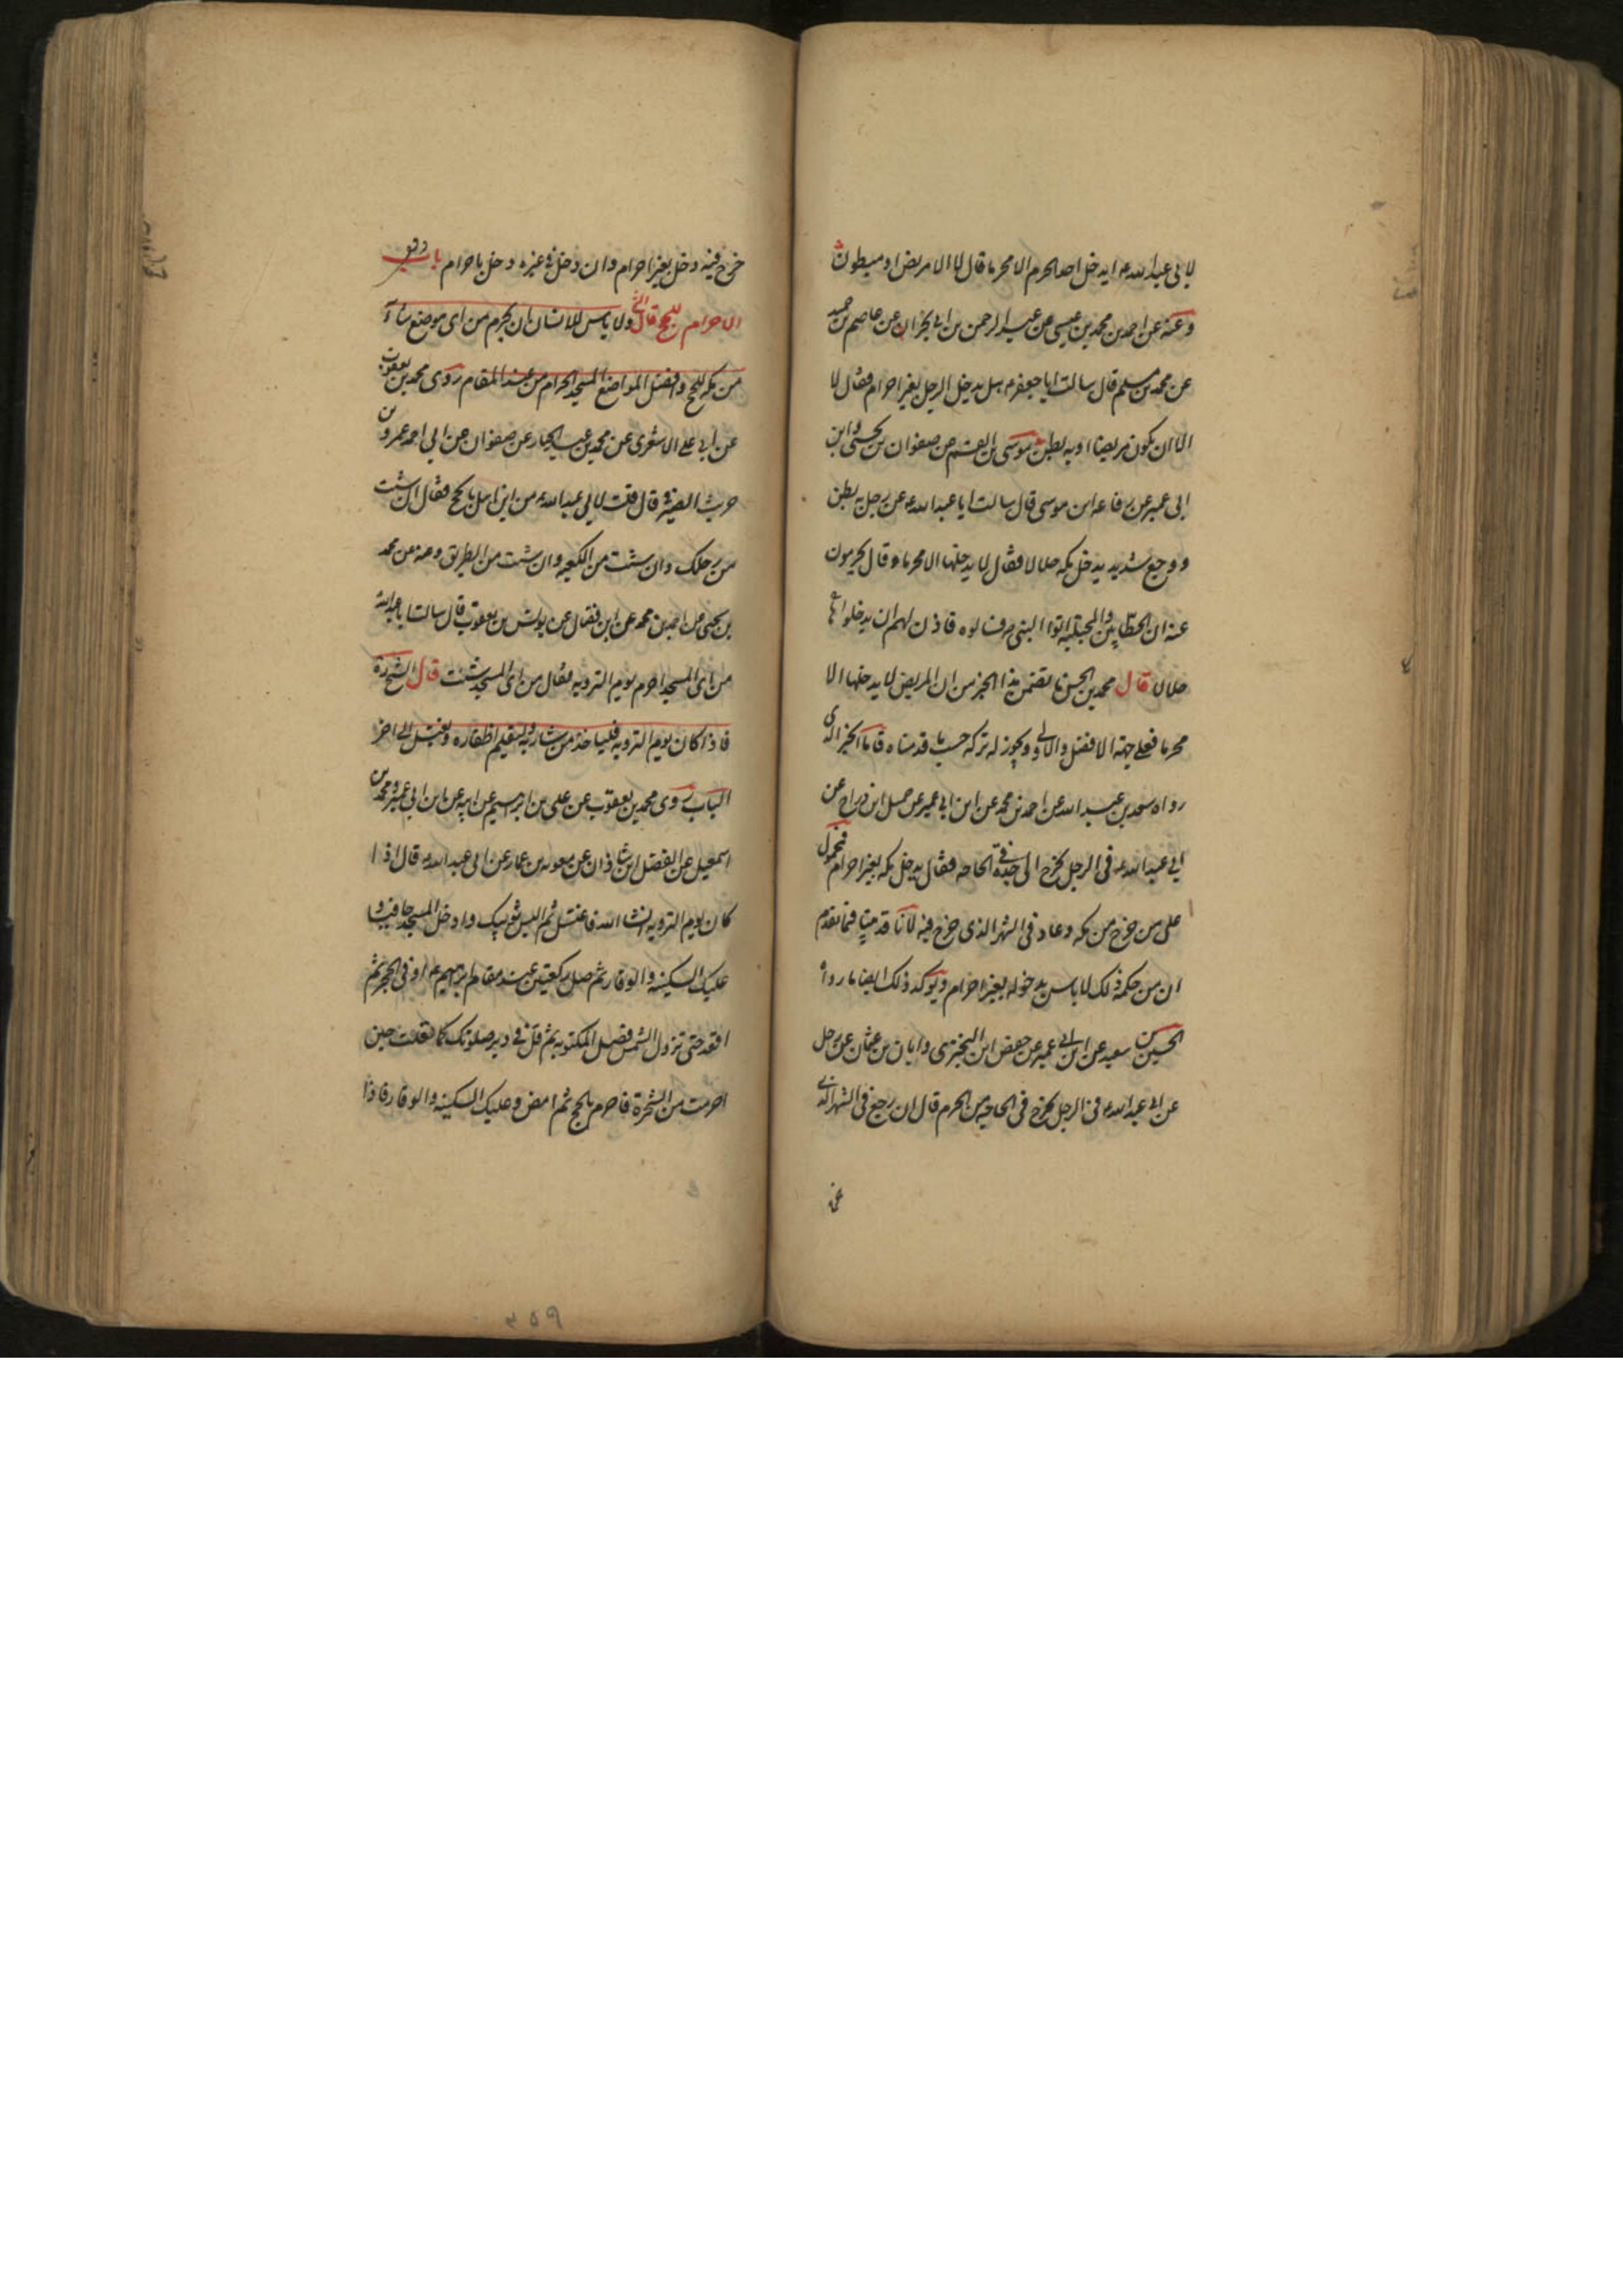 لابی عبدالله ع ایدخل احد الحرم الا محرما قال لا الا مریض او مبطون
وعنه عن احمد بن محمد بن عیسی عن عبد الرحمن بن ابی نجران عن عاصم بن حمید
عن محمد بن مسلم قال سالت ابا جعفر ع هل یدخل الرجل بغیر احرام فقال لا
الا ان یکون مریضا او به بطن موسی بن القسم عن صفوان بن یحیی وابن
ابی عمیر عن رفاعه ابن موسی قال سالت ابا عبدالله ع عن رجل به بطن
ووجع شدید یدخل مکه حلالا فقال لا یدخلها الا محرما وقال یحرمون
عنه ان الحطابین والمجتلبه اتوا النبی ص فسالوه فاذن لهم ان یدخلوها
حلالا قال محمد بن الحسن ما تضمن هذا الخبر من ان المریض لا یدخلها الا
محرما فعلی جهة الافضل والاولی ویجوز له ترکه حسب ما قدمناه فاما الخبر الذی
رواه سعد بن عبد الله عن احمد بن محمد عن ابن ابی عمیر عن جمیل ابن دراج عن
ابی عبدالله ع فی الرجل یخرج الی جده فی الحاجه فقال یدخل مکه بغیر احرام فمحمول
علی من خرج من مکه وعاد فی الشهر الذی خرج فیه لانا قد بینا فیما تقدم
ان من حکمه ذلک لا باس بدخوله بغیر احرام ویوکد ذلک ایضا ما رواه
الحسین بن سعید عن ابن ابی عمیر عن حفص ابن البختری وابان بن عثمان عن رجل
عن ابی عبدالله ع فی الرجل یخرج فی الحاجه من الحرم قال ان رجع فی الشهر الذی
خرج فیه دخل بغیر احرام وان دخل فی غیره دخل باحرام باب
الاحرام للحج قال الشیخ ولا باس للانسان ان یحرم من ای موضع شآء
من مکه للحج وافضل المواضع المسجد الحرام من عند المقام روی محمد بن یعقوب
عن ابی علی الاشعری عن محمد بن عبد الجبار عن صفوان عن ابی احمد عمرو بن
حریث الصیرفی قال قلت لابی عبدالله ع من این اهل بالحج فقال ان شئت
من رحلک وان شئت من الکعبه وان شئت من الطریق وعنه عن محمد
بن یحیی عن احمد بن محمد عن ابن فضال عن یونس بن یعقوب قال سالت ابا عبدالله
من ای المسجد احرم یوم الترویه فقال من ای المسجد شئت قال الشیخ ره
فاذا کان یوم الترویه فلیاخذ من شاربه ولیقلم اظفاره ویغتسل الی اخر
الباب روی محمد بن یعقوب عن علی بن ابرهیم عن ابیه عن ابن ابی عمیر ومحمد بن
اسمعیل عن الفضل ابن شاذان عن معویه بن عمار عن ابی عبدالله ع قال اذا
کان یوم الترویه انشا الله فاغتسل ثم البس ثوبیک وادخل المسجد حافیا و
علیک السکینه والوقار ثم صل رکعتین عند مقام ابرهیم ع او فی الحجر ثم
اقعد حتی تزول الشمس فصل المکتوبه ثم قل فی دبر صلوتک کما قلت حین
احرمت من الشجرة فاحرم بالحج ثم امض وعلیک السکینه والوقار فاذا
۳۵۹